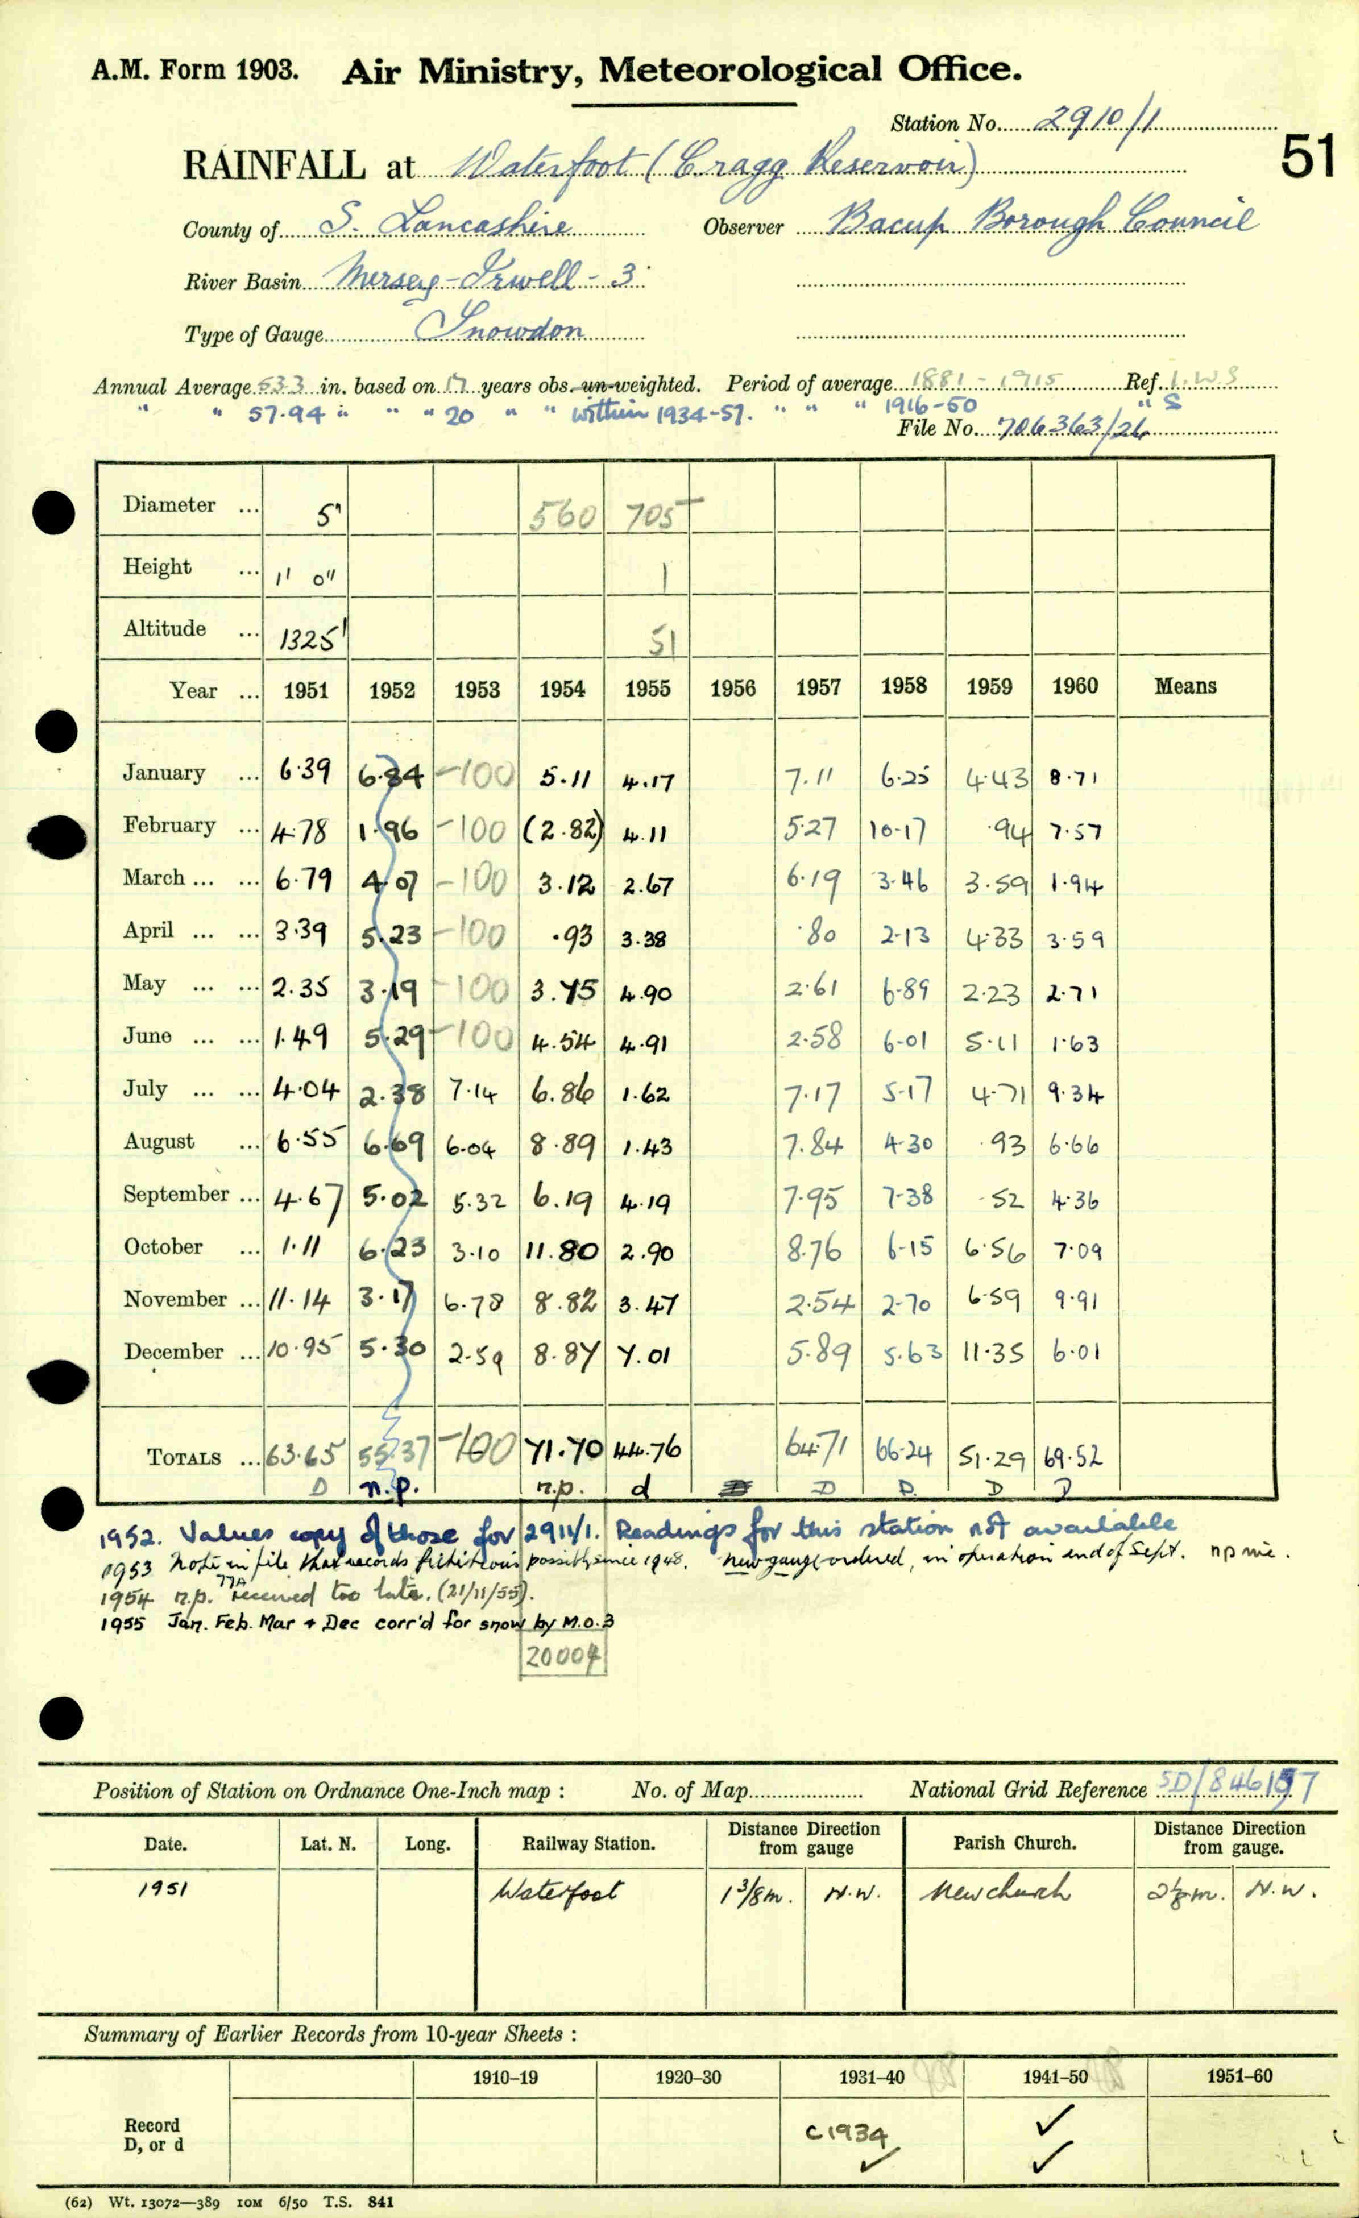 A.M. Form 1903. Air Ministry, Meteorological Office.
Station No. 2910/1
51
RAINFALL at Waterfoot (Cragg Reservoir)
County of S. Lancashire Observer Bacup Borough Council
River Basin Mersey-Irwell-3
Type of Gauge Snowdon
Annual Average 53.3 in. based on 17 years obs. un-weighted. Period of average 1881-1915 Ref. I.W.S
" " 57.94 " " " 20 " " within 1934-57. " " " 1916-50 " S
File No. 706363/26
Diameter ... 5" 560 705
Height ... 1' 0" 1
Altitude ... 1325' 51
Year ... 1951 1952 1953 1954 1955 1956 1957 1958 1959 1960 Means
January ... 6.39 6.84 -100 5.11 4.17 7.11 6.25 4.43 8.71
February ... 4.78 1.96 -100 (2.82) 4.11 5.27 10.17 .94 7.57
March ... ... 6.79 4.07 -100 3.12 2.67 6.19 3.46 3.59 1.94
April ... ... 3.39 5.23 -100 .93 3.38 .80 2.13 4.33 3.59
May ... ... 2.35 3.19 -100 3.75 4.90 2.61 6.89 2.23 2.71
June ... ... 1.49 5.29 -100 4.54 4.91 2.58 6.01 5.11 1.63
July ... ... 4.04 2.38 7.14 6.86 1.62 7.17 5.17 4.71 9.34
August ... 6.55 6.69 6.04 8.89 1.43 7.84 4.30 .93 6.66
September ... 4.67 5.02 5.32 6.19 4.19 7.95 7.38 .52 4.36
October ... 1.11 6.23 3.10 11.80 2.90 8.76 6.15 6.56 7.09
November ... 11.14 3.17 6.78 8.82 3.47 2.54 2.70 6.59 9.91
December ... 10.95 5.30 2.59 8.87 7.01 5.89 5.63 11.35 6.01
TOTALS ... 63.65 55.37 -100 71.70 44.76 64.71 66.24 51.29 69.52
D n.p. n.p. d D D D D
1952. Values copy of those for 2911/1. Readings for this station not available
1953 Note in file that records fictitious possibly since 1948. New gauge ordered, in operation end of Sept. np
1954 n.p. received too late. (21/11/55).
1955 Jan. Feb. Mar + Dec corr'd for snow by M.O.3
20004
Position of Station on Ordnance One-Inch map : No. of Map National Grid Reference SD/846197
Date. Lat. N. Long. Railway Station. Distance from Direction gauge Parish Church. Distance from Direction gauge.
1951 Waterfoot 1 3/8 m. N.W. Newchurch 2 1/8 m. N.W.
Summary of Earlier Records from 10-year Sheets :
1910–19 1920–30 1931–40 1941–50 1951–60
Record c1934 ✓
D, or d ✓ ✓
(62) Wt. 13072—389 10M 6/50 T.S. 841